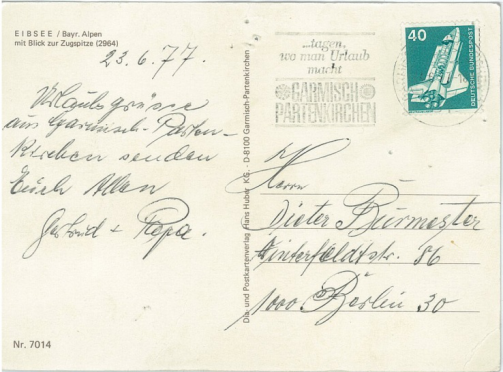 EIBSEE / Bayr. Alpen
mit Blick zur Zugspitze (2964)
23.6.77.
Urlaubsgrüsse
aus Garmisch-Parten-
kirchen senden
Euch Allen
Gertrud + Papa.
Nr. 7014
Dia- und Postkartenverlag Hans Huber KG. - D-8100 Garmisch-Partenkirchen
...tagen,
wo man Urlaub
macht
GARMISCH
PARTENKIRCHEN
40
DEUTSCHE BUNDESPOST
Herrn
Dieter Burmester
Winterfeldtstr. 86
1000 Berlin 30